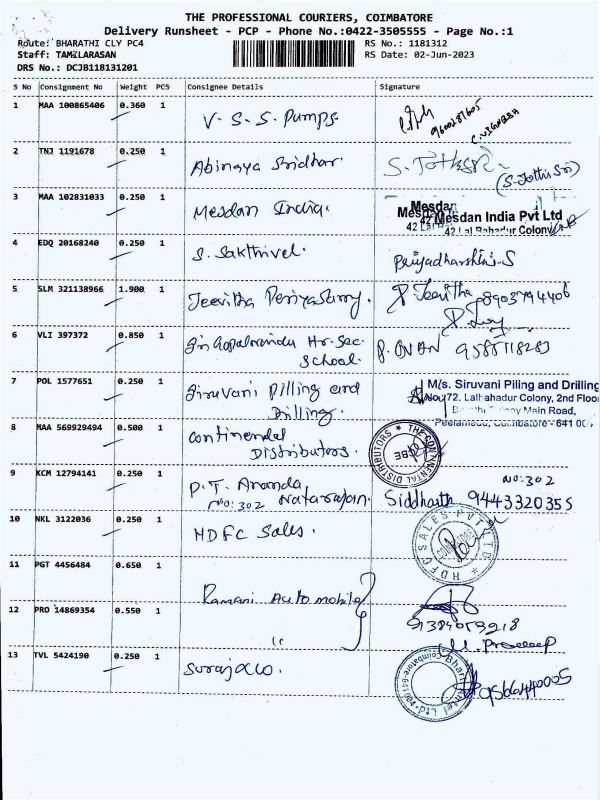 THE PROFESSIONAL COURIERS, COIMBATORE
Delivery Runsheet - PCP - Phone No.:0422-3505555 - Page No.:1
Route: BHARATHI CLY PC4
RS No.: 1181312
Staff: TAMILARASAN
RS Date: 02-Jun-2023
DRS No.: DCJB118131201
S No Consignment No Weight PCS Consignee Details Signature
1 MAA 100865406 0.360 1 V. S. S. Pumps
9600287605
C.VIGNESH
2 TNJ 1191678 0.250 1 Abinaya Sridhar.
(S.Jothi Sri)
3 MAA 102831033 0.250 1 Mesdan India.
Mesdan India Pvt Ltd
42 Lal Bahadur Colony
4 EDQ 20168240 0.250 1 S. Sakthivel. Priyadharshini.S
5 SLM 321138966 1.900 1 Jeevitha Periyasamy.
8903794406
6 VLI 397372 0.850 1 Hr. Sec.
School.
7 POL 1577651 0.250 1 Siruvani Pilling and
Drilling.
M/s. Siruvani Piling and Drilling
No.72, Lalbahadur Colony, 2nd Floor
Main Road,
Peelamedu, Coimbatore - 641 00
8 MAA 569929494 0.500 1 Continendal
Distributors.
THE CONTINENTAL DISTRIBUTORS
CBE
9 KCM 12794141 0.250 1 P. T. Ananda
NO: 302 Natarajan.
NO: 302
Siddharth 9443320355
10 NKL 3122036 0.250 1 HDFC Sales.
HDFC SALES PVT LTD
11 PGT 4456484 0.650 1 Ramani Automobile
12 PRO 14869354 0.550 1 "
M. Pradeep
13 TVL 5424190 0.250 1
9566440005